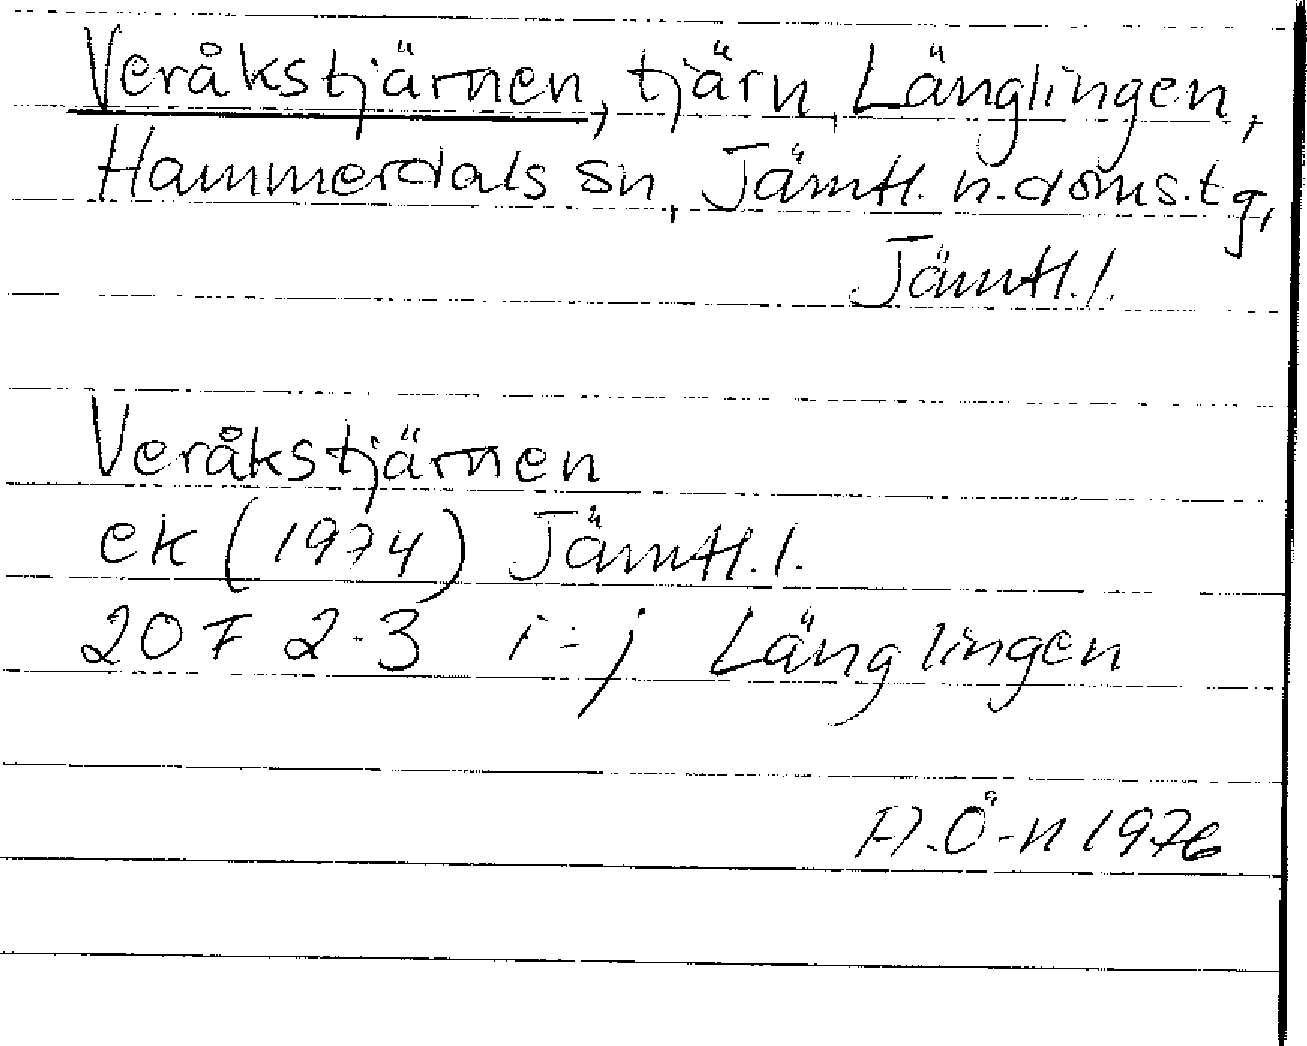 Veråkstjärnen, tjärn, Länglingen,
Hammerdals sn, Jämtl. n. doms. tg,
Jämtl. l.
Veråkstjärnen
ek (1974) Jämtl. l.
20 F 2-3 i-j Länglingen
A.Ö-n 1976